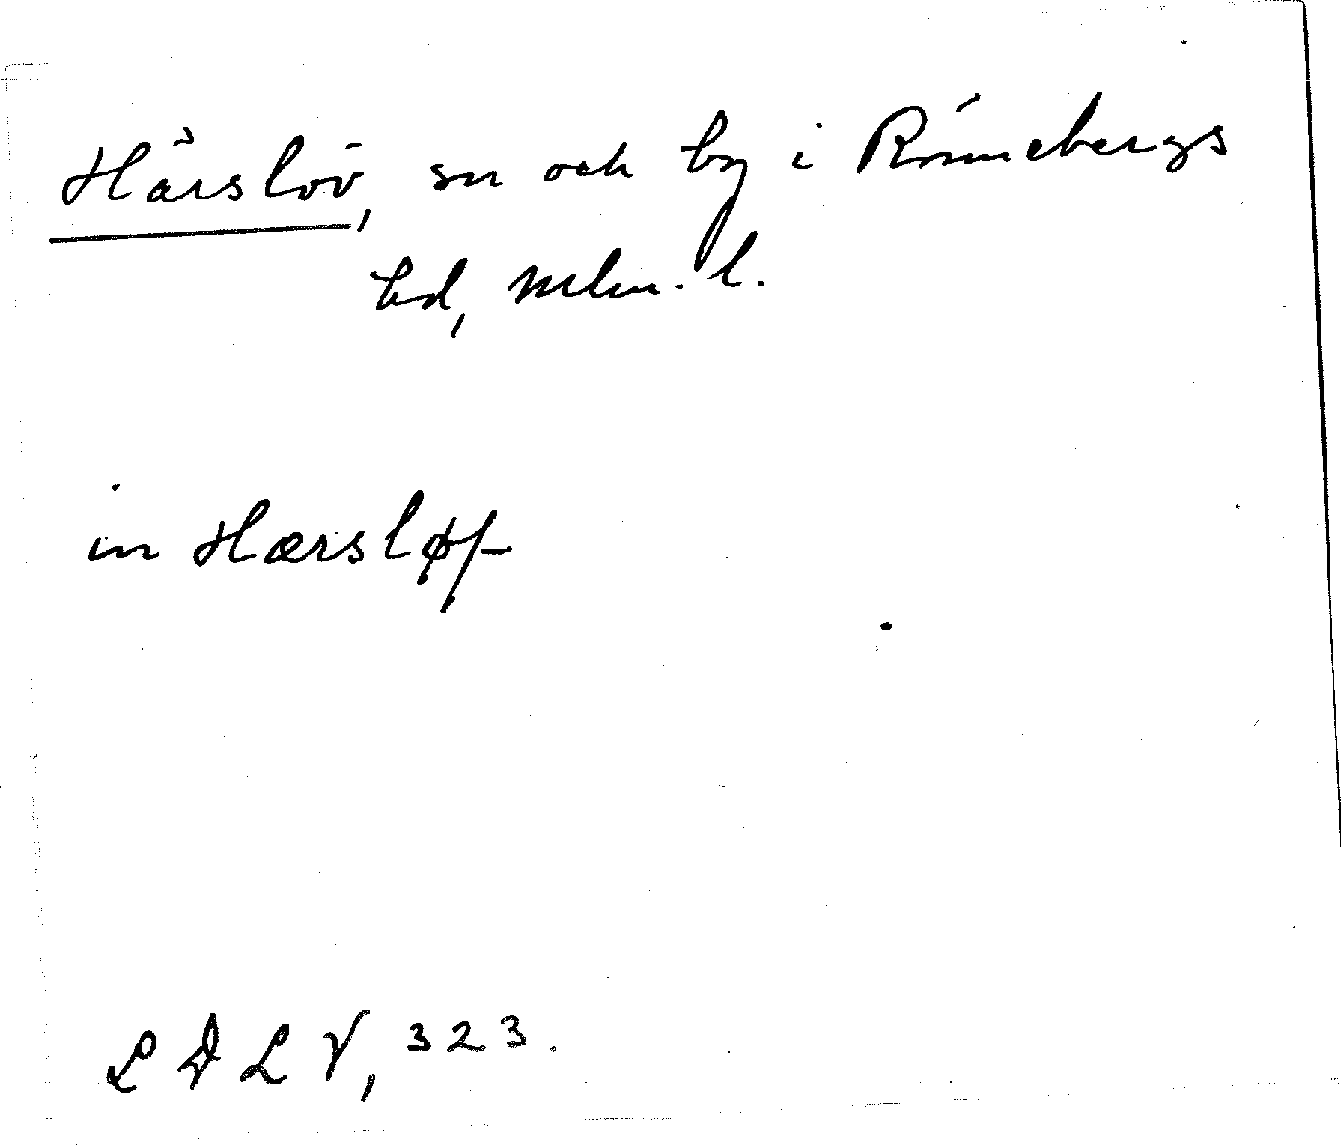 Hårslöv, sn och by i Rönnebergs
hd, Mlm. l.
in Hærsløf
L D L V, 323.